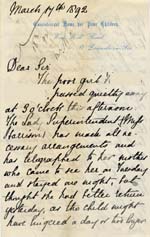 March 17th 1892
Convalescent Home for Poor Children,
West Hill Road
St Leonards-on-Sea
Dear Sir
The poor girl
passed quietly away
at 3 o'clock this afternoon.
The Lady Superintendent (Miss
Harrison) has made all ne-
cessary arrangements and
has telegraphed to her mother
who came to see her on Tuesday
and stayed one night, but
thought she had better return
yesterday as the child might
have lingered a day or two longer